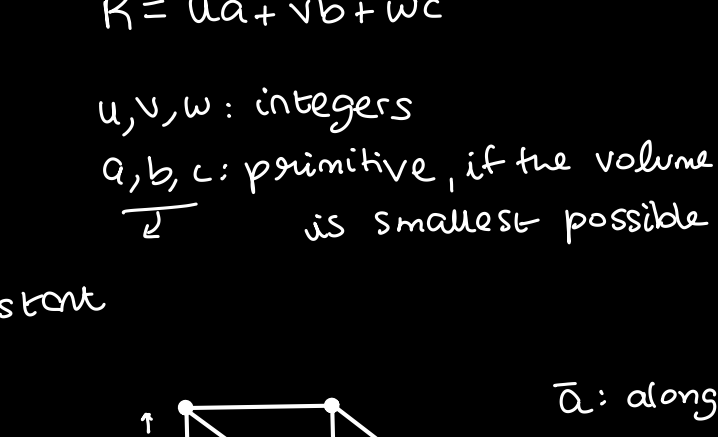 R = ua + vb + wc
u, v, w : integers
a, b, c : primitive, if the volume
is smallest possible
ā : along